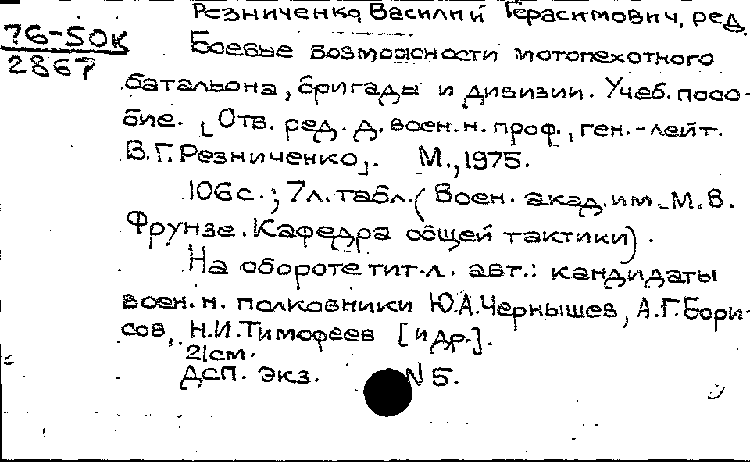 Резниченко Василий Герасимович, ред.
76-50к
2867
Боевые возможности мотопехотного
батальона, бригады и дивизии. Учеб. посо-
бие. [Отв. ред. д. воен. н. проф., ген.-лейт.
В.Г. Резниченко]. М., 1975.
106с.; 7л. табл. (Воен. акад. им. М.В.
Фрунзе. Кафедра общей тактики).
На обороте тит. л. авт.: кандидаты
воен. н. полковники Ю.А. Чернышев, А.Г. Бори-
сов, Н.И. Тимофеев [и др.].
21см.
ДСП. Экз. N 5.